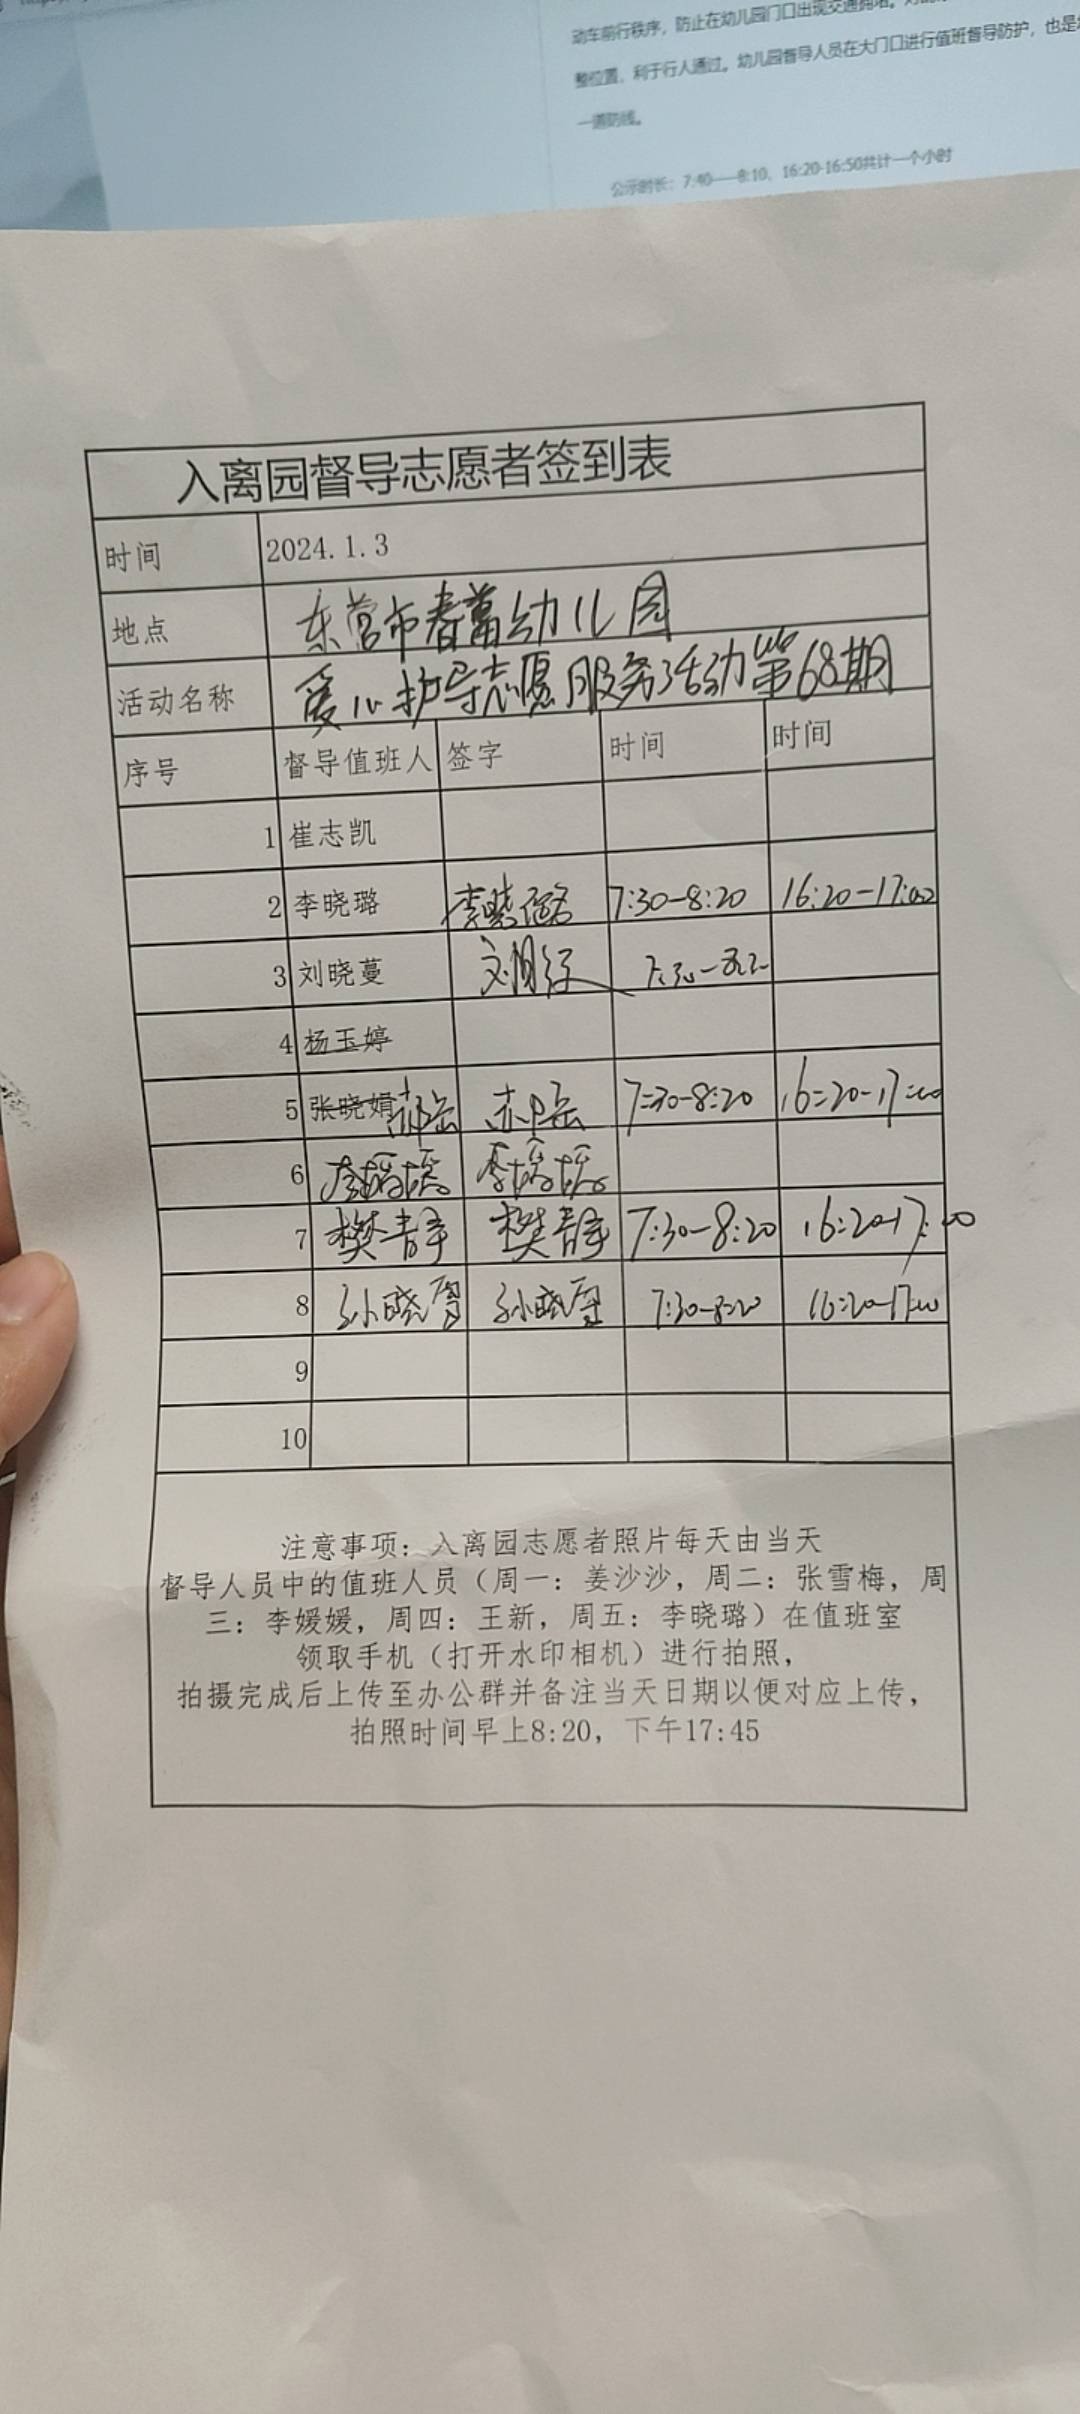 动车前行秩序，防止在幼儿园门口出现交通拥堵。
整位置、利于行人通过。幼儿园督导人员在大门口进行值班督导防护，也是
一道防线。
公示时长：7:40——8:10、16:20-16:50共计一个小时
入离园督导志愿者签到表
时间 2024.1.3
地点 东营市春蕾幼儿园
活动名称 爱心护导志愿服务活动第68期
序号 督导值班人 签字 时间 时间
1 崔志凯
2 李晓璐 李晓璐 7:30-8:20 16:20-17:00
3 刘晓蔓
4 杨玉婷
5 张晓娟 7:30-8:20 16:20-17:00
6 李媛媛 李媛媛
7 樊静 樊静 7:30-8:20 16:20-17:00
8 孙晓 孙晓 7:30-8:20 16:20-17:00
9
10
注意事项：入离园志愿者照片每天由当天
督导人员中的值班人员（周一：姜沙沙，周二：张雪梅，周
三：李媛媛，周四：王新，周五：李晓璐）在值班室
领取手机（打开水印相机）进行拍照，
拍摄完成后上传至办公群并备注当天日期以便对应上传，
拍照时间早上8:20，下午17:45